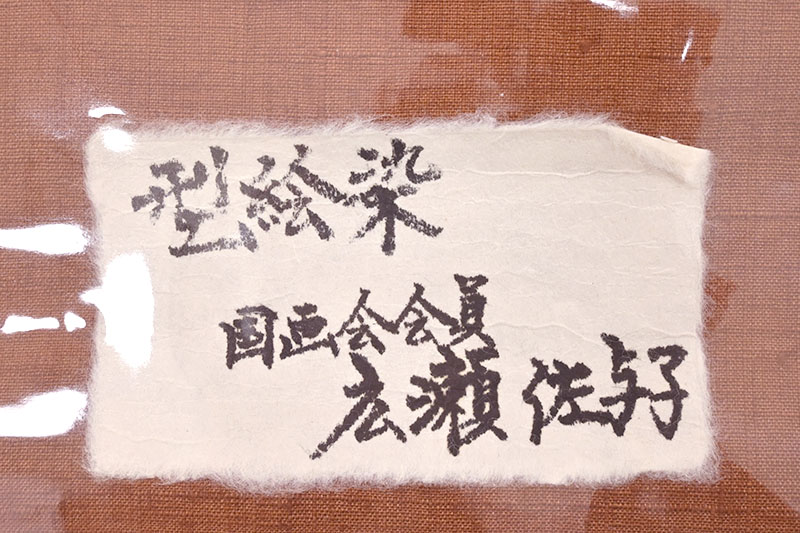 型絵染
国画会会員
広瀬佐与子